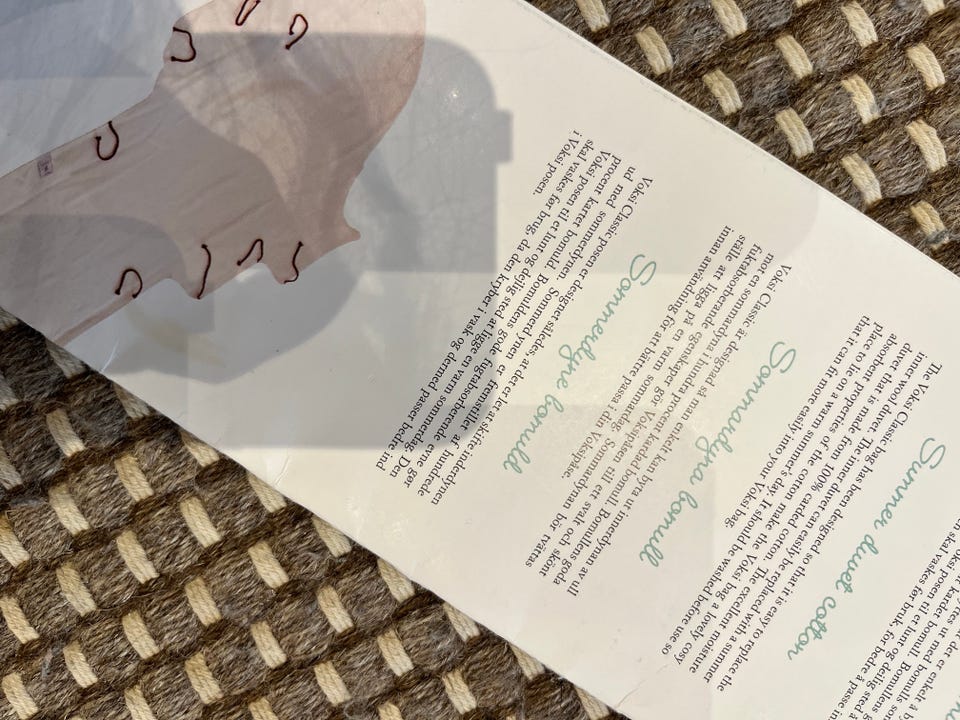 der er enkelt å
ut med bomulls
kardet bomull. Bomullens
posen til et lunt og deilig sted
skal vaskes før bruk, for bedre å passe
Summer duvet cotton
The Voksi Classic bag has been designed so that it is easy to replace the
inner wool duvet. The inner duvet can easily be replaced with a summer
duvet that is made from 100% carded cotton. The excellent moisture
absorbent properties of the cotton make the Voksi bag a lovely cosy
place to lie on a warm summer's day. It should be washed before use so
that it can fit more easily into your Voksi bag.
Sommardyna bomull
Voksi Classic är designad så man enkelt kan byta ut innerdynan av ull
mot en sommardyna i hundra procent kardad bomull. Bomullens goda
fuktabsorberande egenskaper gör Voksipåsen till ett svalt och skönt
ställe att ligga på en varm sommardag. Sommardynan bör tvättas
innan användning för att bättre passa i din Voksipåse.
Sommerdyne bomuld
Voksi Classic posen er designet således, at det er let at skifte inderdynen
ud med sommerdynen. Sommerdynen er fremstillet af hundrede
procent kartet bomuld. Bomuldens gode fugtabsorberende evne gør
Voksi posen til et lunt og dejlig sted at ligge en varm sommerdag. Den
skal vaskes før brug, da den kryber i vask og dermed passer bedre ind
i Voksi posen.